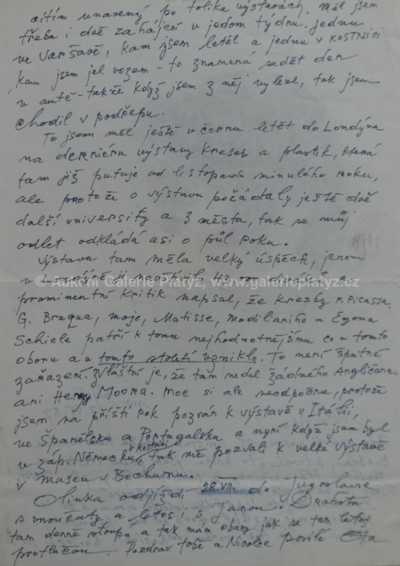 cítím unavený po tolika výstavách. Měl jsem
třeba i dvě zahájení v jednom týdnu. Jednu
ve Varšavě, kam jsem letěl a jednu v Kostnici
kam jsem jel vozem – to znamená sedět den
v autě – takže když jsem z něj vylezl, tak jsem
chodil v podřepu.
To jsem měl ještě v černu letět do Londýna
na dernieru výstavy kreseb a plastik, která
tam již putuje od listopadu minulého roku,
ale protože o výstavu požádaly ještě dvě
další university a 3 města, tak se můj
odlet odkládá asi o půl roku.
Výstava tam měla velký úspěch, jenom
v Londýně
© Aukční Galerie Platýz, www.galerieplatyz.cz
prominentní kritik napsal, že kresby P. Picassa,
G. Braqua, moje, Matisse, Modilaniho a Egona
Schiele patří k tomu nejhodnotnějšímu co v tomto
oboru a v tomto století vzniklo. To není špatné
zařazení. Zvláštní je, že tam nedal žádného Angličana
ani Henry Moora. Moc si ale neodpočinu, protože
jsem na příští rok pozván k výstavě v Itálii,
ve Španělsku a Portugalsku a nyní když jsem byl
v záp. Německu, tak mě pozvali k velké výstavě
v museu v Bochumu.
Olinka odjíždí 28.VII. do Jugoslavie
s vnoučaty a letos i s Janou.
tam denně
Pozdrav Toše a Nicolce posílá Ota